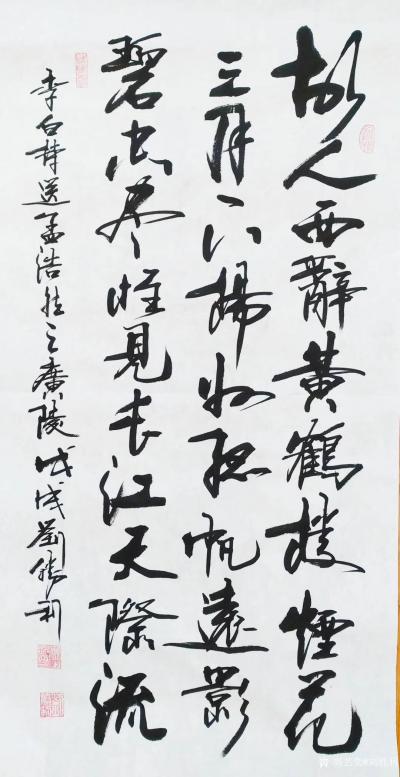 故人西辭黄鶴樓煙花
三月下揚州孤帆遠影
碧空尽惟見長江天際流
李白詩送孟浩然之廣陵戊戌劉勝利